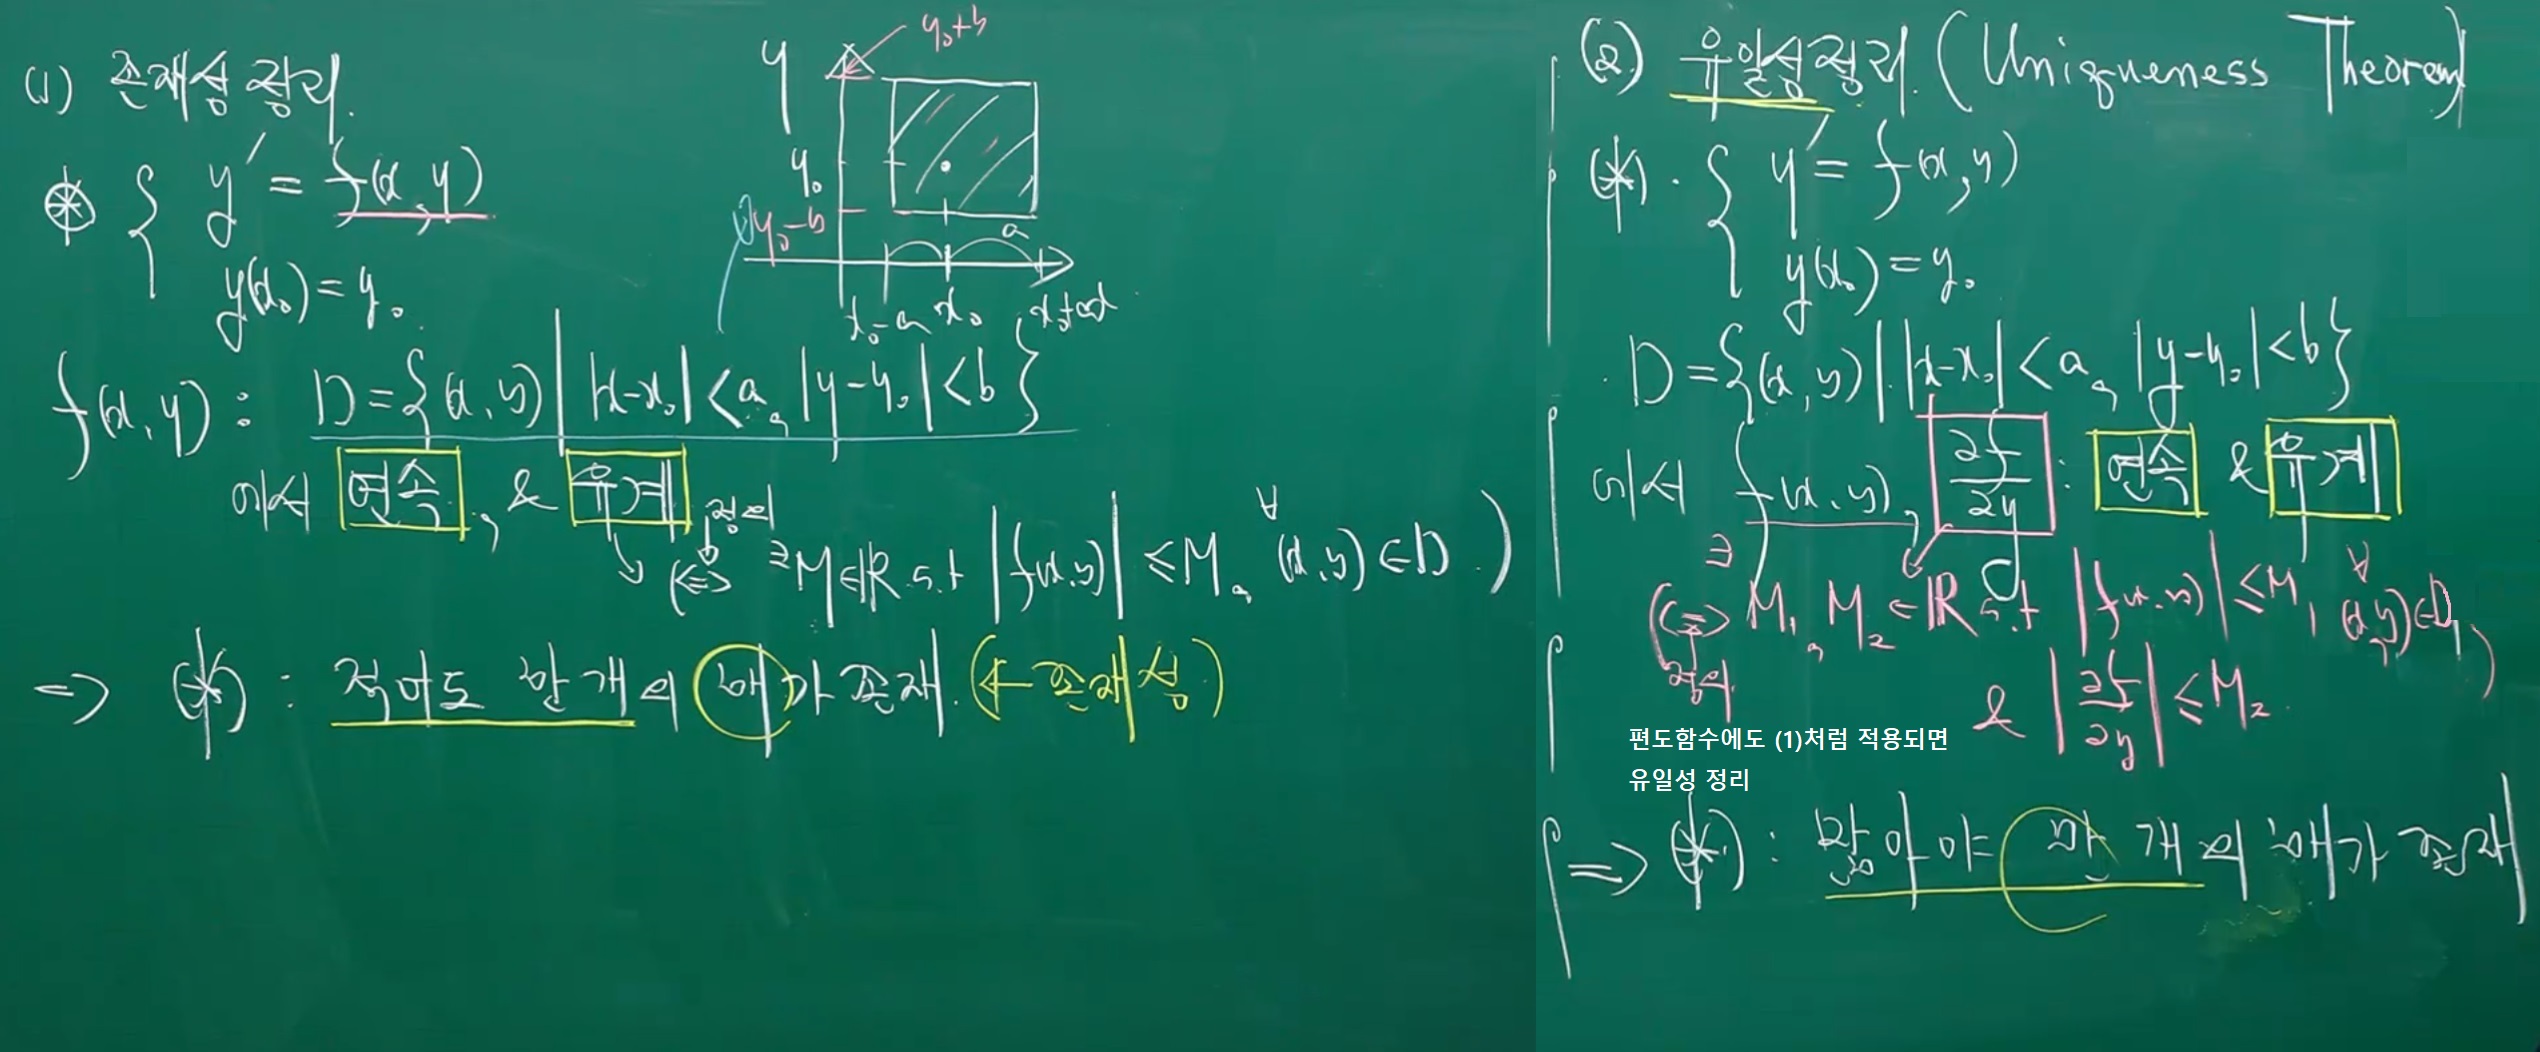 (1) 존재성 정리.
⊛ { y′ = f(x, y)
y(x₀) = y₀.
y
y₀+b
y₀
y₀-b
a
x₀-a x₀ x₀+a
f(x, y) : D = {(x, y) | |x-x₀| < a, |y-y₀| < b}
에서 연속, & 유계
정의
(⇔ ∃M∈ℝ s.t |f(x,y)| ≤ M, ∀(x,y) ∈ D.)
⇒ (*) : 적어도 한개의 해가 존재. (← 존재성)
(2) 유일성정리. (Uniqueness Theorem)
(*). { y′ = f(x, y)
y(x₀) = y₀
D = {(x, y) | |x-x₀| < a, |y-y₀| < b}
에서 f(x, y), ∂f/∂y : 연속 & 유계
(⇔ ∃M₁, M₂ ∈ ℝ s.t |f(x,y)| ≤ M₁ ∀(x,y)∈D,
정의.
& |∂f/∂y| ≤ M₂.)
편도함수에도 (1)처럼 적용되면
유일성 정리
⇒ (*) : 많아야 한 개의 해가 존재